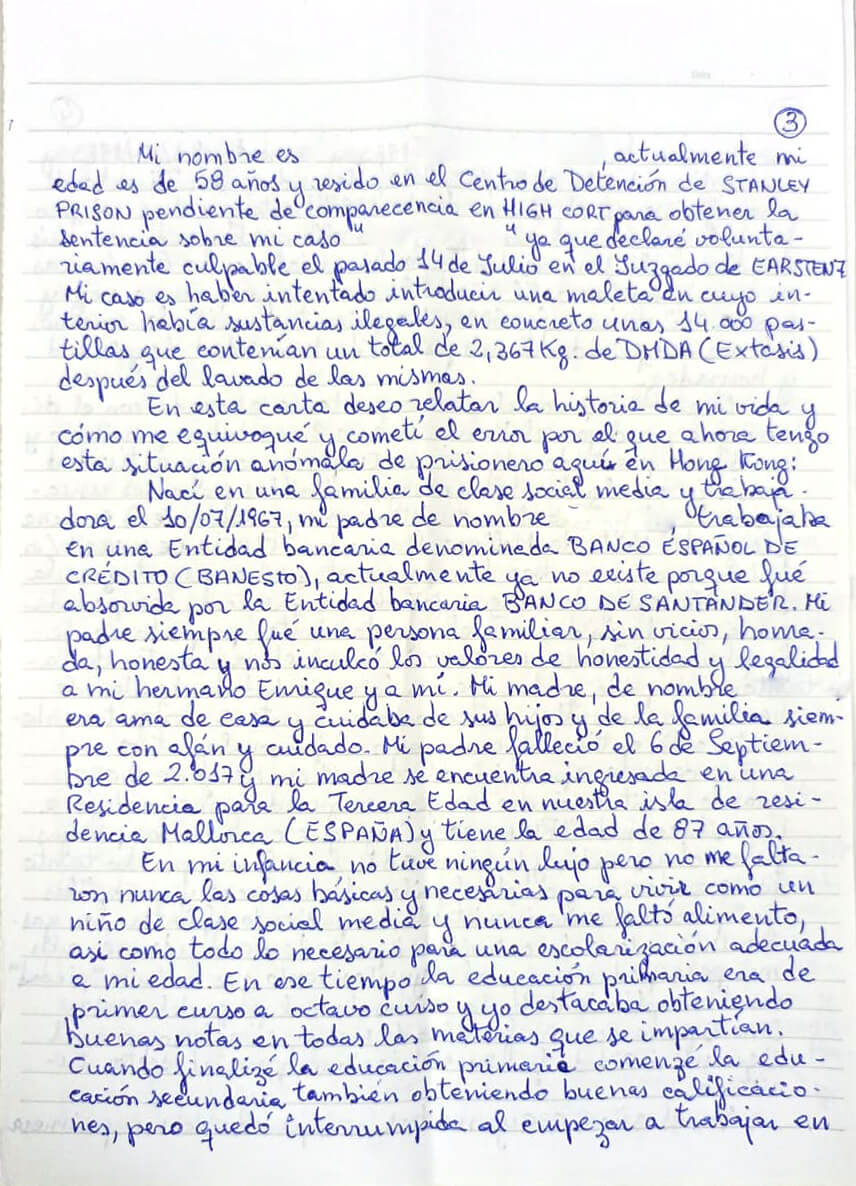 3
Mi nombre es , actualmente mi
edad es de 58 años y resido en el Centro de Detención de STANLEY
PRISON pendiente de comparecencia en HIGH CORT para obtener la
sentencia sobre mi caso " " ya que declaré volunta-
riamente culpable el pasado 14 de Julio en el Juzgado de
Mi caso es haber intentado introducir una maleta en cuyo in-
terior había sustancias ilegales, en concreto unas 14.000 pas-
tillas que contenían un total de 2,367 Kg. de DMDA (Extasis)
después del lavado de las mismas.
En esta carta deseo relatar la historia de mi vida y
cómo me equivoqué y cometí el error por el que ahora tengo
esta situación anómala de prisionero aquí en Hong Kong:
Nací en una familia de clase social media y trabaja-
dora el 10/07/1967, mi padre de nombre , trabajaba
en una Entidad bancaria denominada BANCO ESPAÑOL DE
CRÉDITO (BANESTO), actualmente ya no existe porque fué
absorvida por la Entidad bancaria BANCO DE SANTANDER. Mi
padre siempre fué una persona familiar, sin vicios, honra-
da, honesta y nos inculcó los valores de honestidad y legalidad
a mi hermano Enrique y a mí. Mi madre, de nombre
era ama de casa y cuidaba de sus hijos y de la familia siem-
pre con afán y cuidado. Mi padre falleció el 6 de Septiem-
bre de 2.017 y mi madre se encuentra ingresada en una
Residencia para la Tercera Edad en nuestra isla de resi-
dencia Mallorca (ESPAÑA) y tiene la edad de 87 años.
En mi infancia no tuve ningún lujo pero no me falta-
ron nunca las cosas básicas y necesarias para vivir como un
niño de clase social media y nunca me faltó alimento,
asi como todo lo necesario para una escolarización adecuada
a mi edad. En ese tiempo la educación primaria era de
primer curso a octavo curso y yo destacaba obteniendo
buenas notas en todas las materias que se impartían.
Cuando finalizé la educación primaria comenzé la edu-
cación secundaria también obteniendo buenas calificacio-
nes, pero quedó interrumpida al empezar a trabajar en